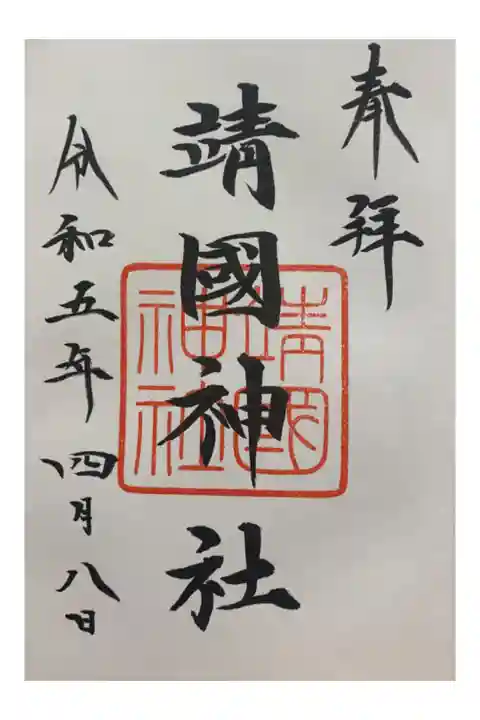 奉拝
靖國神社
靖國神社
令和五年四月八日